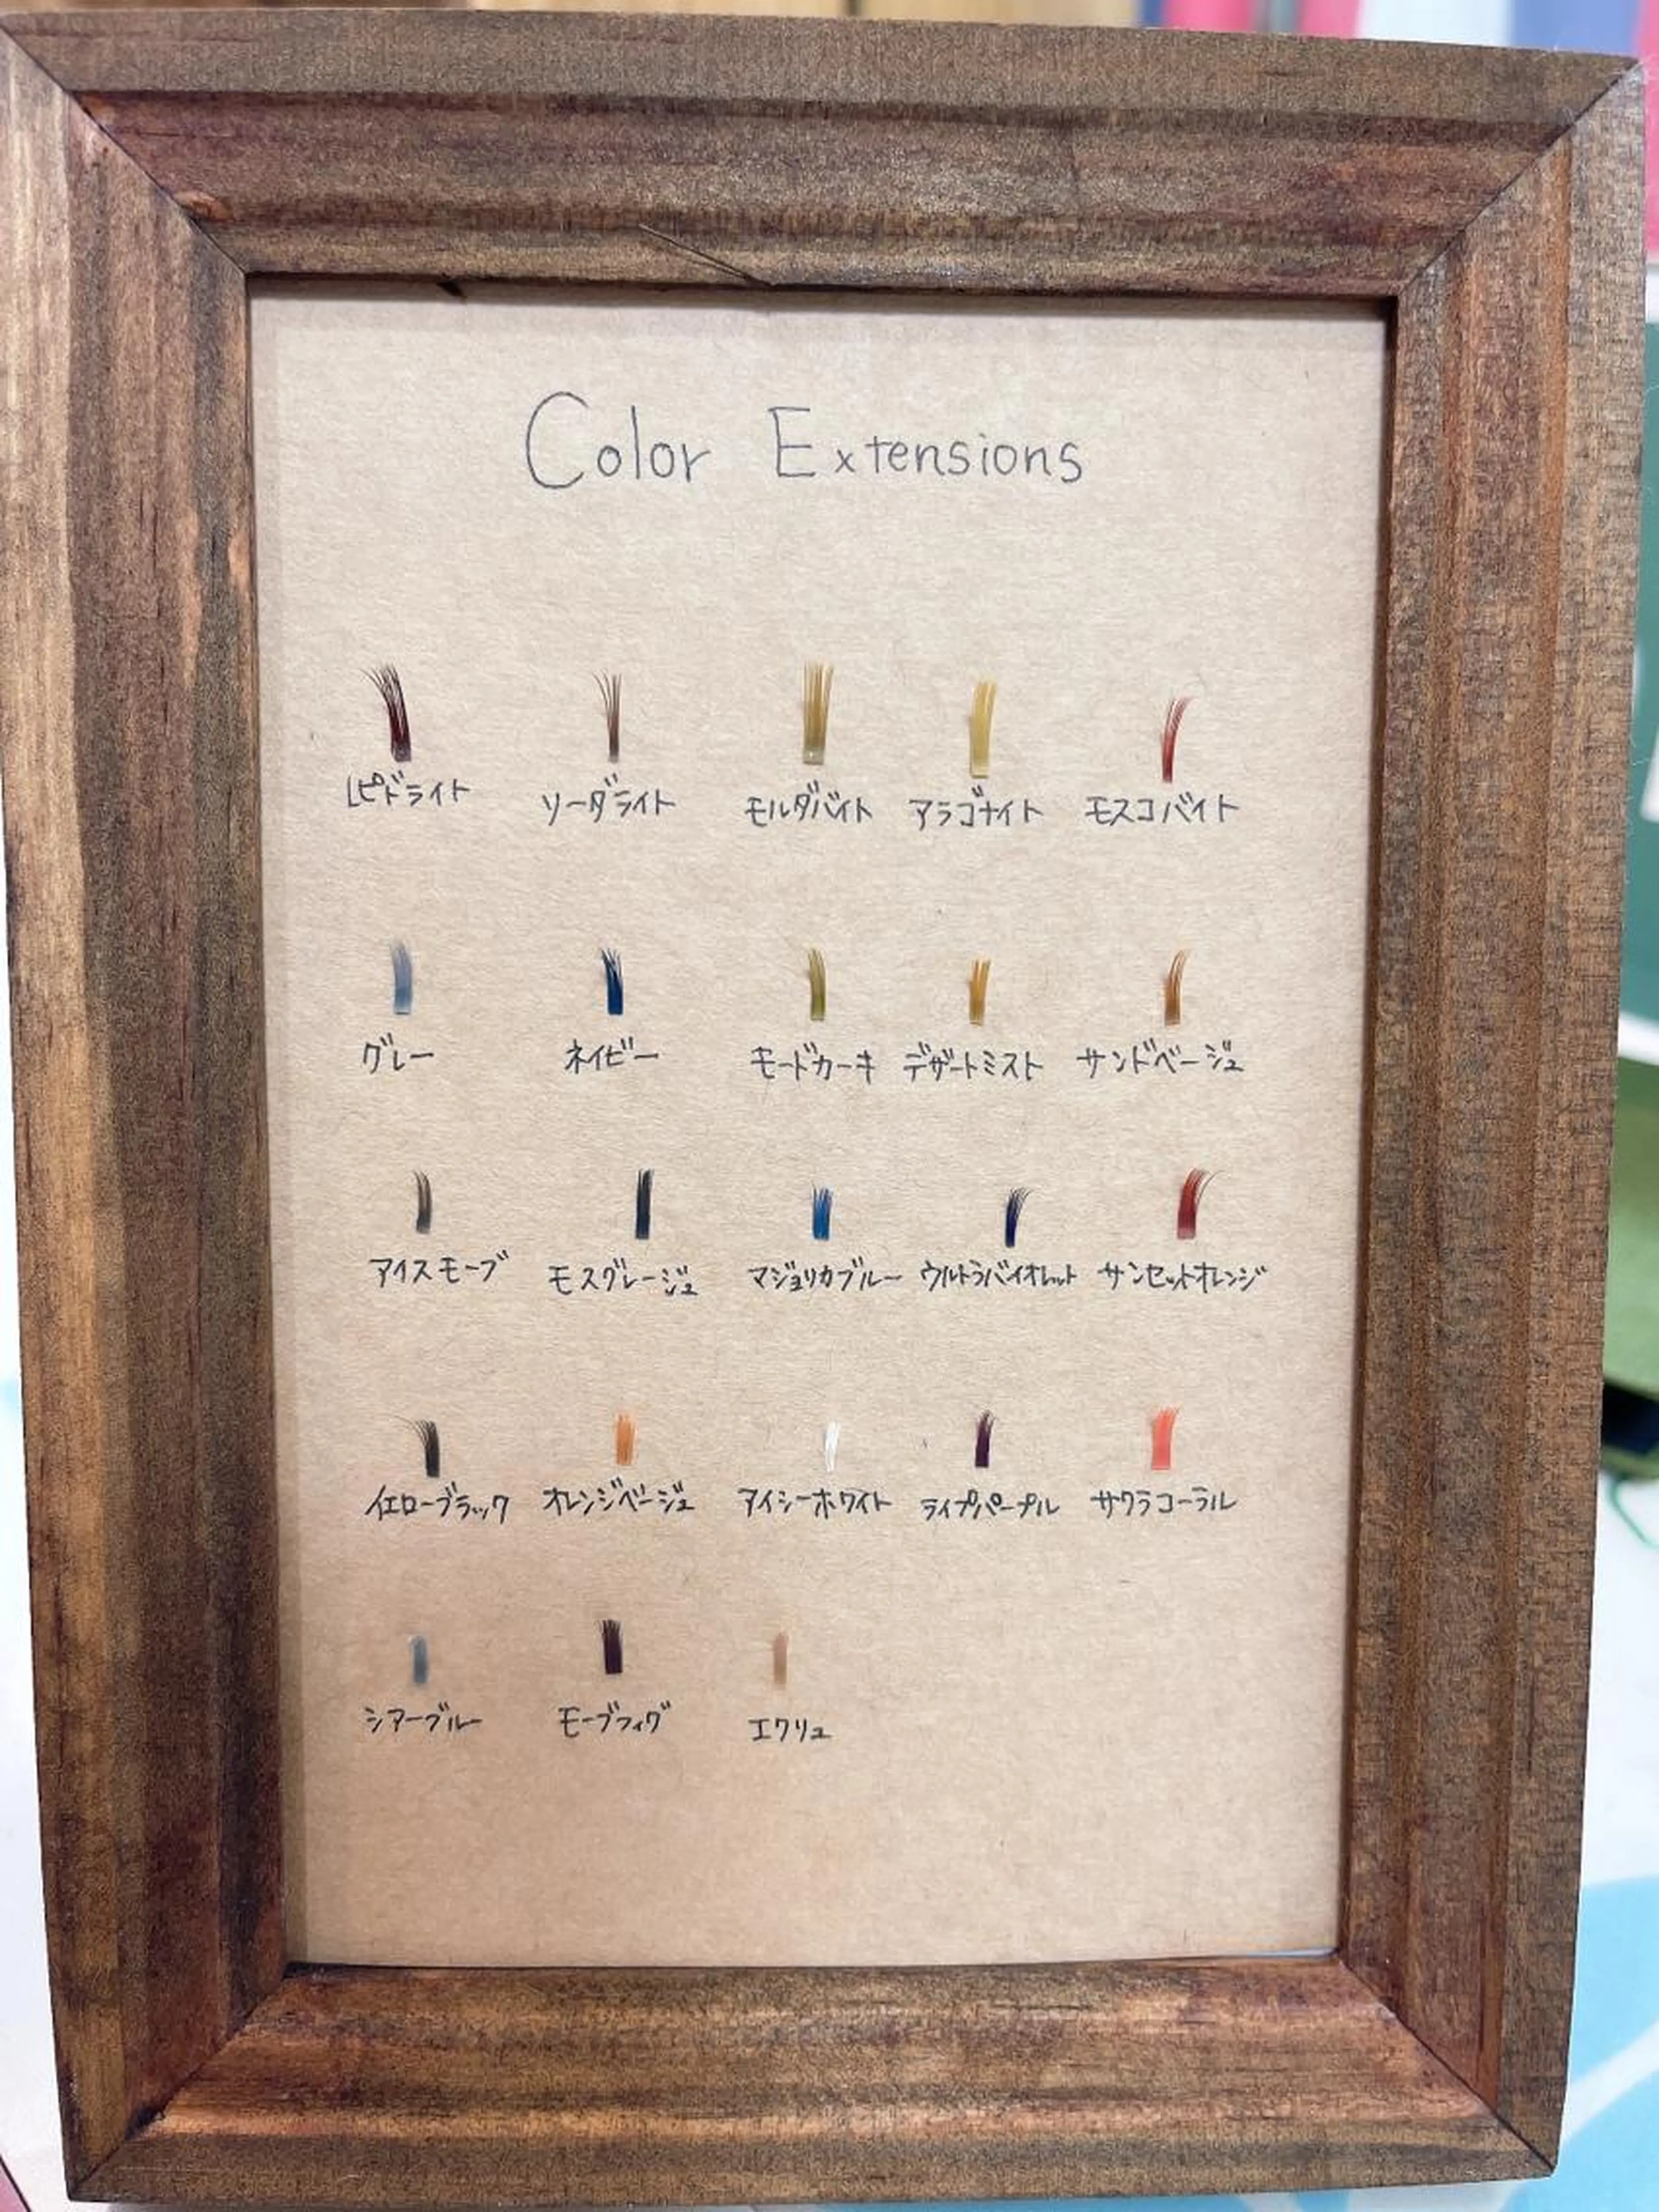 Color Extensions
レピドライト ソーダライト モルダバイト アラゴナイト モスコバイト
グレー ネイビー モードカーキ デザートミスト サンドベージュ
アイスモーブ モスグレージュ マジョリカブルー ウルトラバイオレット サンセットオレンジ
イエローブラック オレンジベージュ アイシーホワイト ライプパープル サクラコーラル
シアーブルー モーブフィグ エクリュ